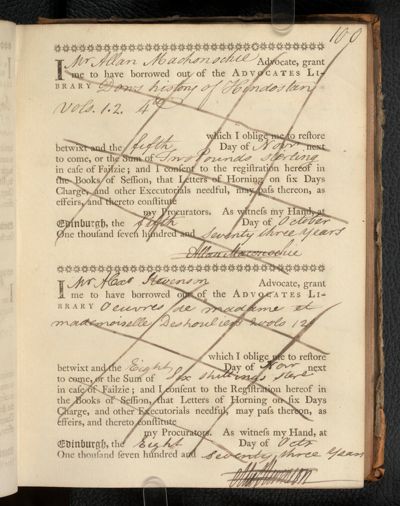 100
I Mr Allan Machonochie Advocate, grant
me to have borrowed out of the ADVOCATES LI-
BRARY Dows history of Hindostan
Vols. 1. 2. 4to
which I oblige me to restore
betwixt and the fifth Day of Novr next
to come, or the Sum of Two Pounds sterling
in case of Failzie; and I consent to the registration hereof in
the Books of Session, that Letters of Horning on six Days
Charge, and other Executorials needful, may pass thereon, as
effeirs, and thereto constitute
my Procurators. As witness my Hand, at
Edinburgh, the fifth Day of October
One thousand seven hundred and seventy three years
Allan Maconochie
I Mr Alexr Stevenson Advocate, grant
me to have borrowed out of the ADVOCATES LI-
BRARY Oeuvres de madame et
mademoiselle Deshoulieres 2 vols 12o
which I oblige me to restore
betwixt and the Eight Day of Novr next
to come, or the Sum of six shillings
in case of Failzie; and I consent to the Registration hereof in
the Books of Session, that Letters of Horning on six Days
Charge, and other Executorials needful, may pass thereon, as
effeirs, and thereto constitute
my Procurators. As witness my Hand, at
Edinburgh, the Eight Day of Octr
One thousand seven hundred and seventy three Years